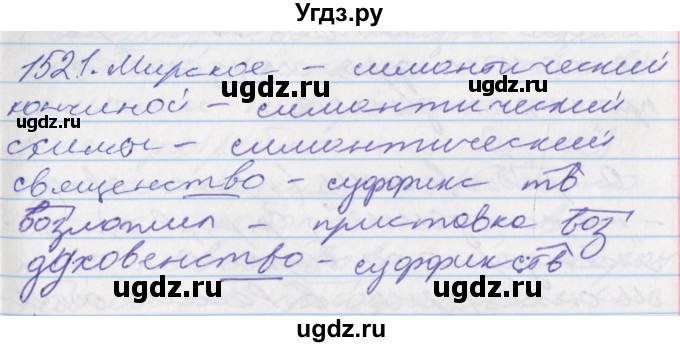 Угдз.ру
1521. Мирское – симантический
кончиной – симантический
схимы – симантический
священство – суффикс тв
возложил – приставка воз
духовенство – суффикс тв
ugdz.ru ugdz.ru
ugdz.ru ugdz.ru
ugdz.ru